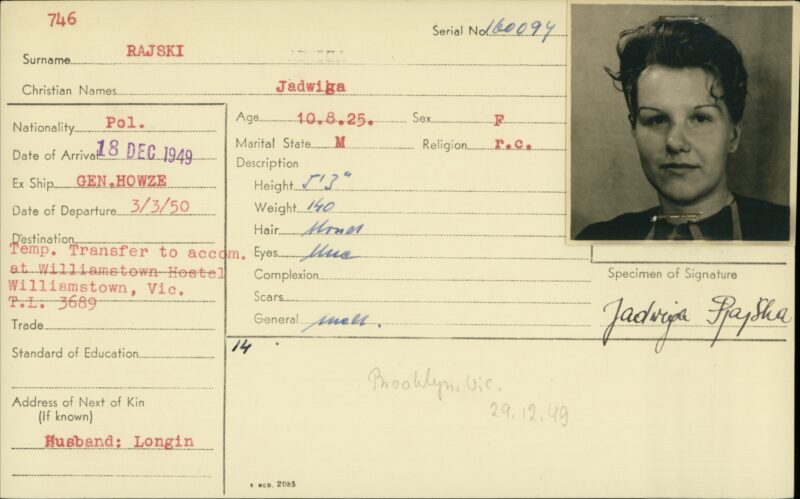 746
Serial No. 160094
Surname RAJSKI
Christian Names Jadwiga
Nationality Pol.
Date of Arrival 18 DEC 1949
Ex Ship GEN.HOWZE
Date of Departure 3/3/50
Destination
Temp. Transfer to accom.
at Williamstown Hostel
Williamstown, Vic.
T.L. 3689
Trade
Standard of Education
Address of Next of Kin
(If known)
Husband: Longin
Age 10.8.25. Sex F
Marital State M Religion r.c.
Description
Height 5'3"
Weight 140
Hair
Eyes
Complexion
Scars
General
Specimen of Signature
Jadwiga Rajska
14
Brooklyn, Vic.
29.12.49
2085